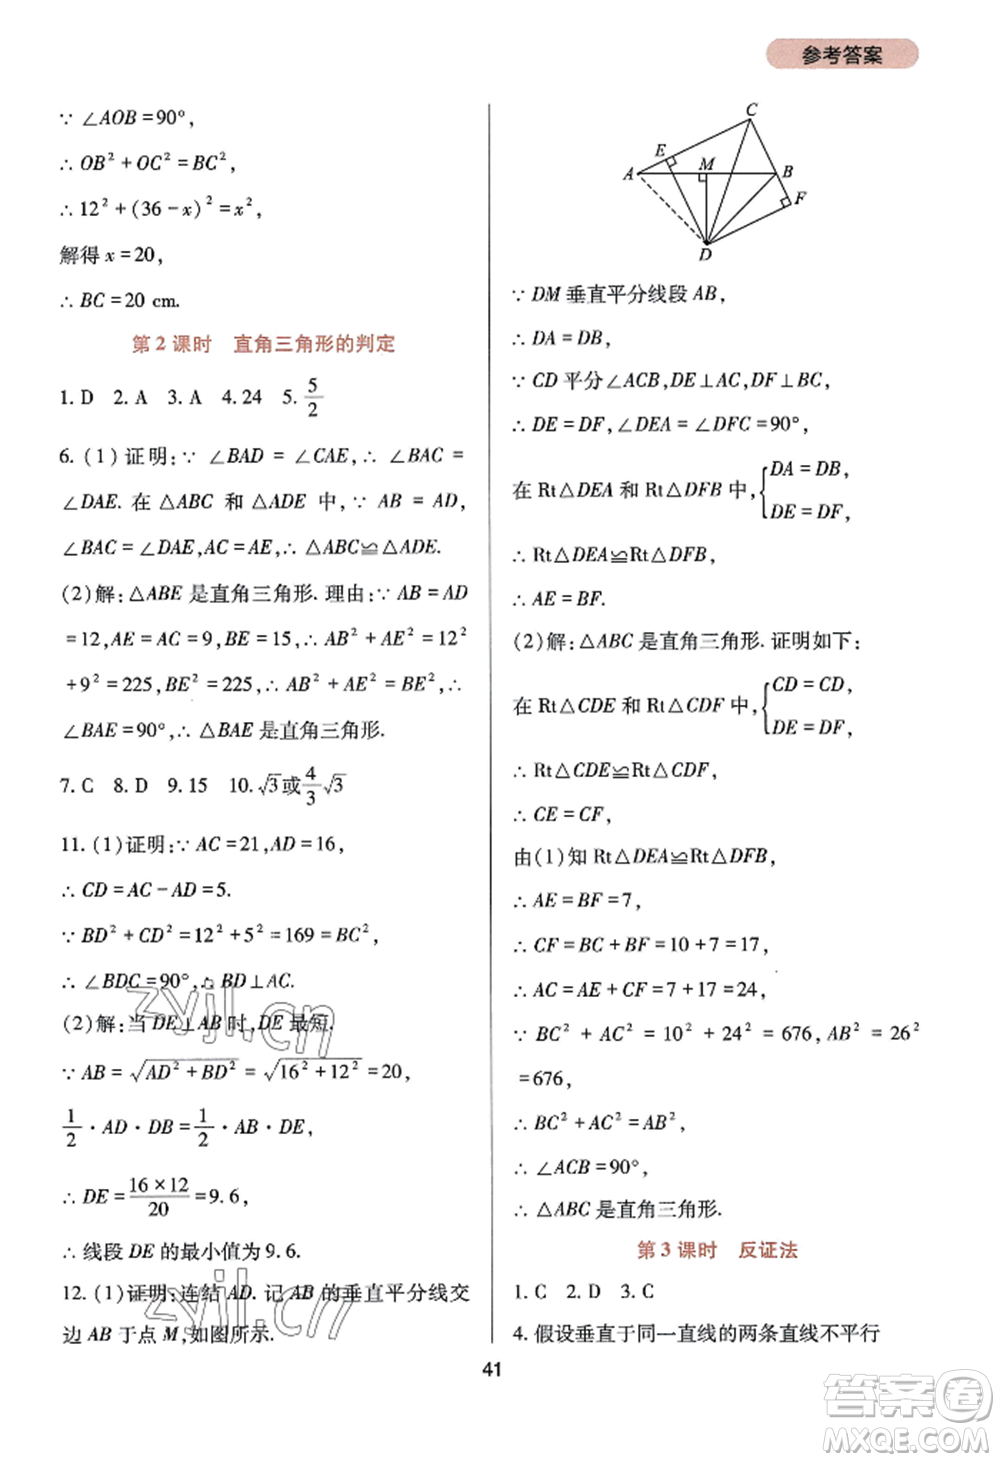 参考答案
∵ ∠AOB=90°,
∴ OB²+OC²=BC²,
∴ 12²+(36-x)²=x²,
解得 x=20,
∴ BC=20 cm.
第 2 课时 直角三角形的判定
1. D 2. A 3. A 4. 24 5. 5/2
6. (1) 证明:∵ ∠BAD = ∠CAE,∴ ∠BAC =
∠DAE. 在 △ABC 和 △ADE 中,∵ AB = AD,
∠BAC=∠DAE,AC=AE,∴ △ABC≌△ADE.
(2)解:△ABE 是直角三角形. 理由:∵ AB=AD
=12,AE=AC=9,BE=15,∴ AB²+AE²=12²
+9²=225,BE²=225,∴ AB²+AE²=BE²,∴
∠BAE=90°,∴ △BAE 是直角三角形.
7. C 8. D 9. 15 10. √3或4/3√3
11. (1)证明:∵ AC=21,AD=16,
∴ CD=AC-AD=5.
∵ BD²+CD²=12²+5²=169=BC²,
∴ ∠BDC=90°,∴ BD⊥AC.
(2)解:当 DE⊥AB 时,DE 最短.
∵ AB=√(AD²+BD²)=√(16²+12²)=20,
1/2·AD·DB=1/2·AB·DE,
∴ DE=(16×12)/20=9.6,
∴ 线段 DE 的最小值为 9.6.
12. (1)证明:连结 AD. 记 AB 的垂直平分线交
边 AB 于点 M,如图所示.
C
E
A
M
B
F
D
∵ DM 垂直平分线段 AB,
∴ DA=DB,
∵ CD 平分∠ACB,DE⊥AC,DF⊥BC,
∴ DE=DF,∠DEA=∠DFC=90°,
在 Rt△DEA 和 Rt△DFB 中,{DA=DB,
DE=DF,
∴ Rt△DEA≌Rt△DFB,
∴ AE=BF.
(2)解:△ABC 是直角三角形. 证明如下:
在 Rt△CDE 和 Rt△CDF 中,{CD=CD,
DE=DF,
∴ Rt△CDE≌Rt△CDF,
∴ CE=CF,
由(1)知 Rt△DEA≌Rt△DFB,
∴ AE=BF=7,
∴ CF=BC+BF=10+7=17,
∴ AC=AE+CF=7+17=24,
∵ BC²+AC²=10²+24²=676,AB²=26²
=676,
∴ BC²+AC²=AB²,
∴ ∠ACB=90°,
∴ △ABC 是直角三角形.
第 3 课时 反证法
1. C 2. D 3. C
4. 假设垂直于同一直线的两条直线不平行
41
zyjl.cn
zyjl.cn
答案圈
MXQE.COM